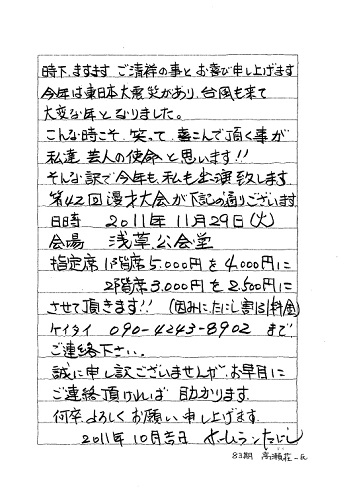 時下、ますます ご清祥の事と お喜び申し上げます
今年は東日本大震災があり、台風も来て
大変な年と なりました。
こんな時こそ、笑って、喜こんで頂く事が
私達 芸人の使命と思います!!
そんな訳で今年も、私も出演致します
第42回漫才大会が下記の通りございます
日時 2011年11月29日(火)
会場 浅草公会堂
指定席 1階席5.000円を4.000円に
2階席3.000円を2.500円に
させて頂きます!! (因みに、たにし割引料金)
ケイタイ 090-4243-8902 まで
ご連絡下さい。
誠に申し訳ございませんが、お早目に
ご連絡頂ければ 助かります。
何卒、よろしく お願い 申し上げます。
2011年10月吉日 ホームランたにし
83期 高瀬荘一